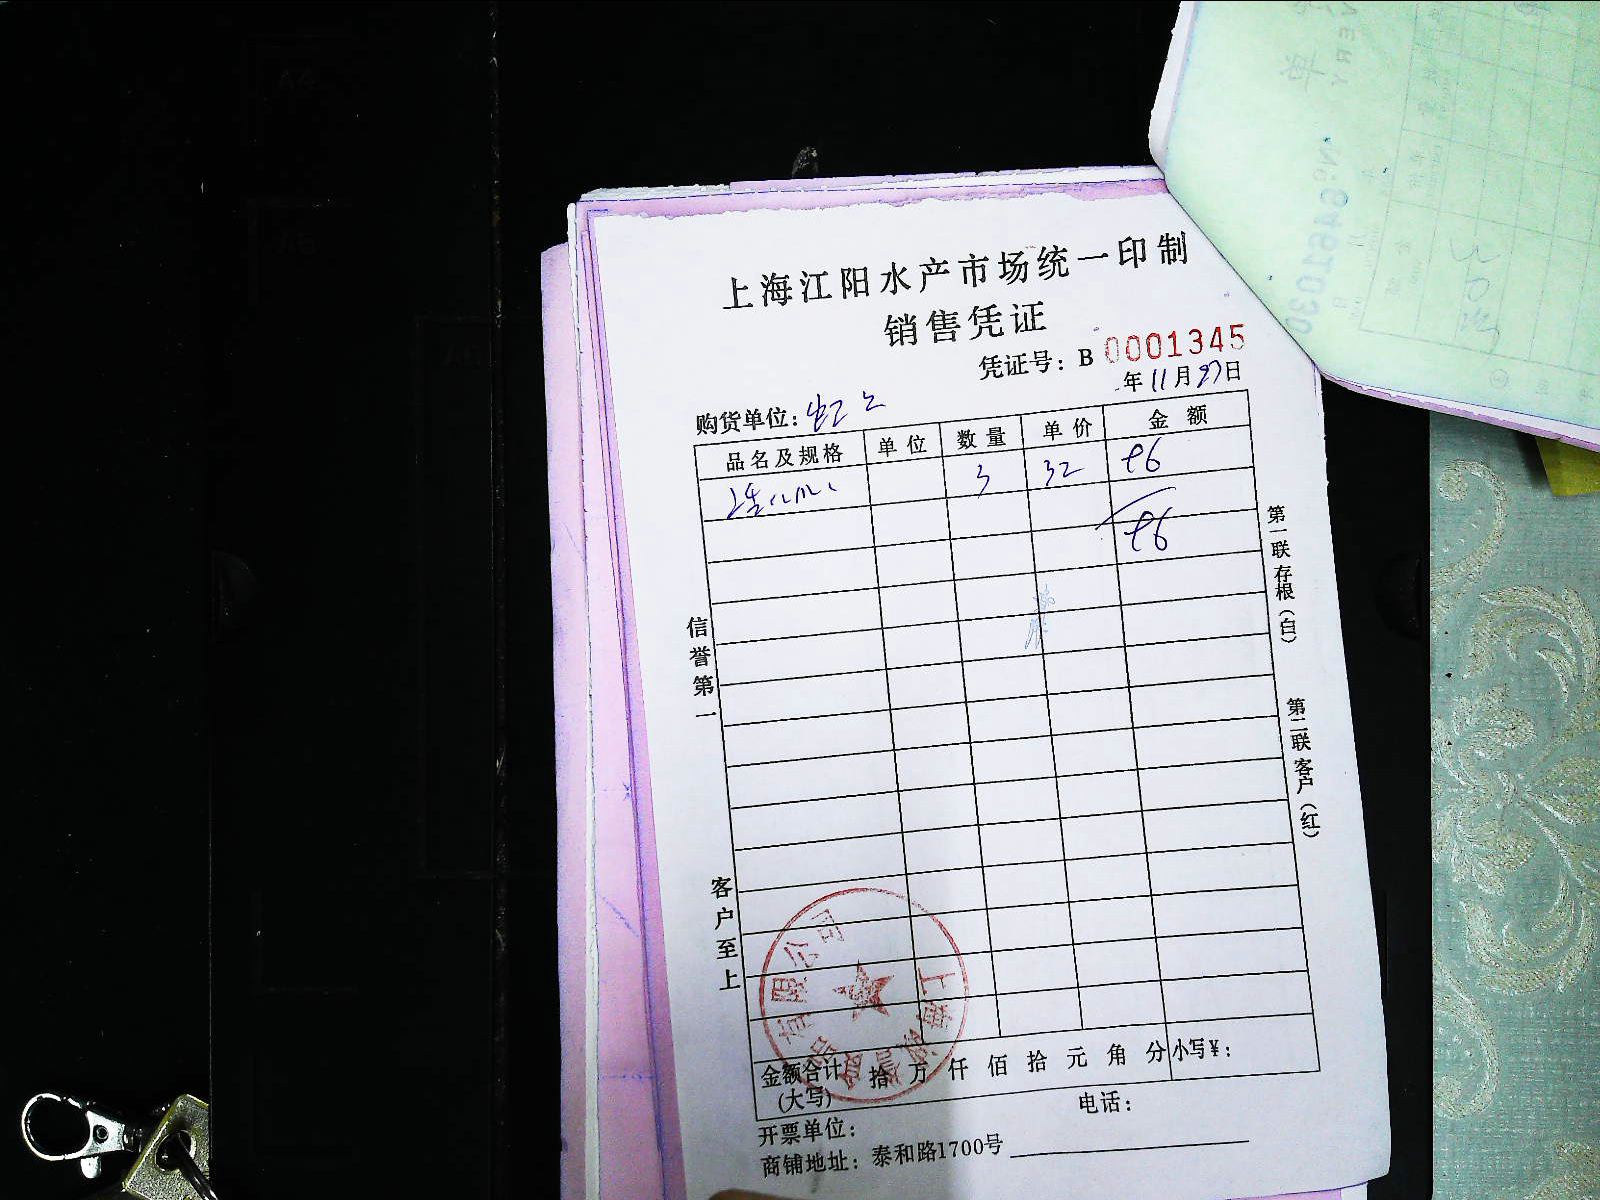 上海江阳水产市场统一印制
销售凭证
凭证号：B 0001345
年11月27日
购货单位：
品名及规格 单位 数量 单价 金额
3 32 96
96
信誉第一
客户至上
第一联存根（白）
第二联客户（红）
金额合计（大写） 拾 万 仟 佰 拾 元 角 分 小写¥：
开票单位： 电话：
商铺地址：泰和路1700号
上海 有限公司
No 6461030